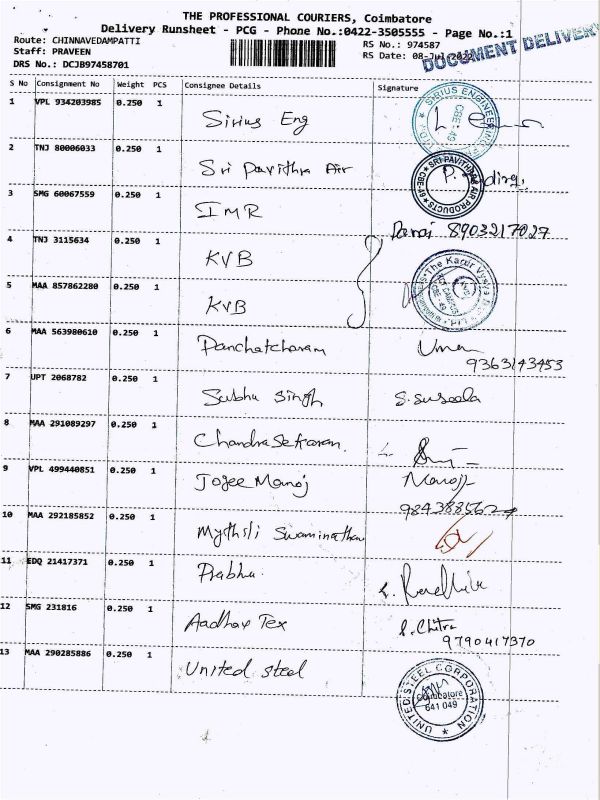 THE PROFESSIONAL COURIERS, Coimbatore
Delivery Runsheet - PCG - Phone No.:0422-3505555 - Page No.:1
Route: CHINNAVEDAMPATTI
Staff: PRAVEEN
DRS No.: DCJB97458701
RS No.: 974587
RS Date: 08-Jul-2022
DOCUMENT DELIVERY
S No Consignment No Weight PCS Consignee Details Signature
1 VPL 934203985 0.250 1 Sirius Eng
SIRIUS ENGINEERING CBE-49
2 TNJ 80006033 0.250 1 Sri Pavithra Air
SRI PAVITHRA AIR PRODUCTS CBE-49
3 SMG 60067559 0.250 1 IMR
8903217027
4 TNJ 3115634 0.250 1 KVB
The Karur Vysya
5 MAA 857862280 0.250 1 KVB
6 MAA 563980610 0.250 1 Panchatcharam Uma
9363143453
7 UPT 2068782 0.250 1 Subhu Singh S. Suseela
8 MAA 291089297 0.250 1 Chandrasekaran.
9 VPL 499440851 0.250 1 Jojee Manoj Manoj
10 MAA 292185852 0.250 1 Mythili Swaminathan
11 EDQ 21417371 0.250 1 Prabhu
12 SMG 231816 0.250 1 Aadhav Tex S. Chitra
9790417370
13 MAA 290285886 0.250 1 United steel
UNITED STEEL CORPORATION
Coimbatore
641 049